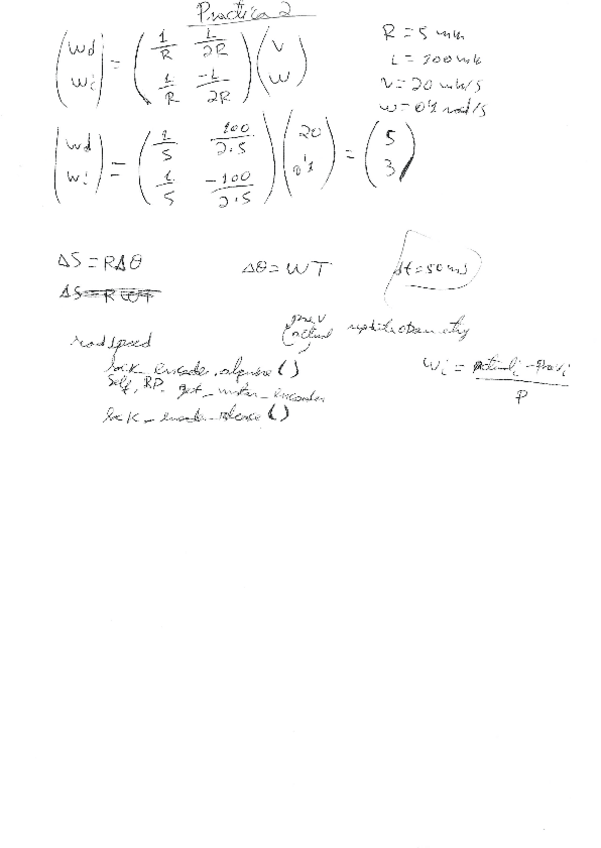 Practica 2
(wd wi) = (1/R L/2R 1/R -L/2R) (v w)
R = 5 mm
L = 100 mm
v = 20 mm/s
w = 0'1 rad/s
(wd wi) = (1/5 100/2·5 1/5 -100/2·5) (20 0'1) = (5 3)
ΔS = RΔθ
Δθ = WT
Δt = 50 ms
ΔS = R WT
prev
(actual
readspeed
lock_encoder.acquire()
self.BP.get_motor_encoder
lock_encoder.release()
wi = actuali - previ / P